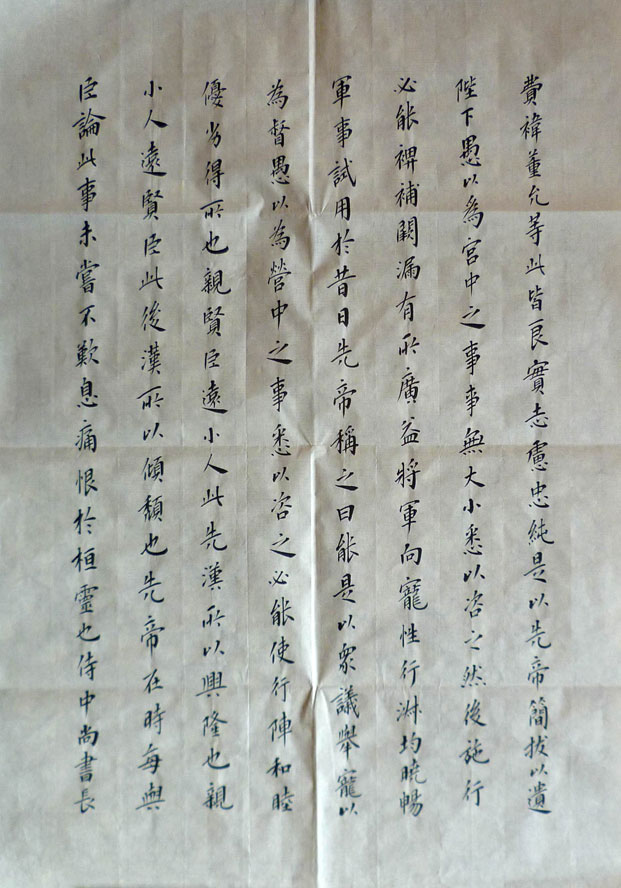 費禕董允等此皆良實志慮忠純是以先帝簡拔以遺
陛下愚以為宮中之事事無大小悉以咨之然後施行
必能裨補闕漏有所廣益將軍向寵性行淋均曉暢
軍事試用於昔日先帝稱之曰能是以眾議舉寵以
為督愚以為營中之事悉以咨之必能使行陣和睦
優劣得所也親賢臣遠小人此先漢所以興隆也親
小人遠賢臣此後漢所以傾頹也先帝在時每與
臣論此事未嘗不歎息痛恨於桓靈也侍中尚書長